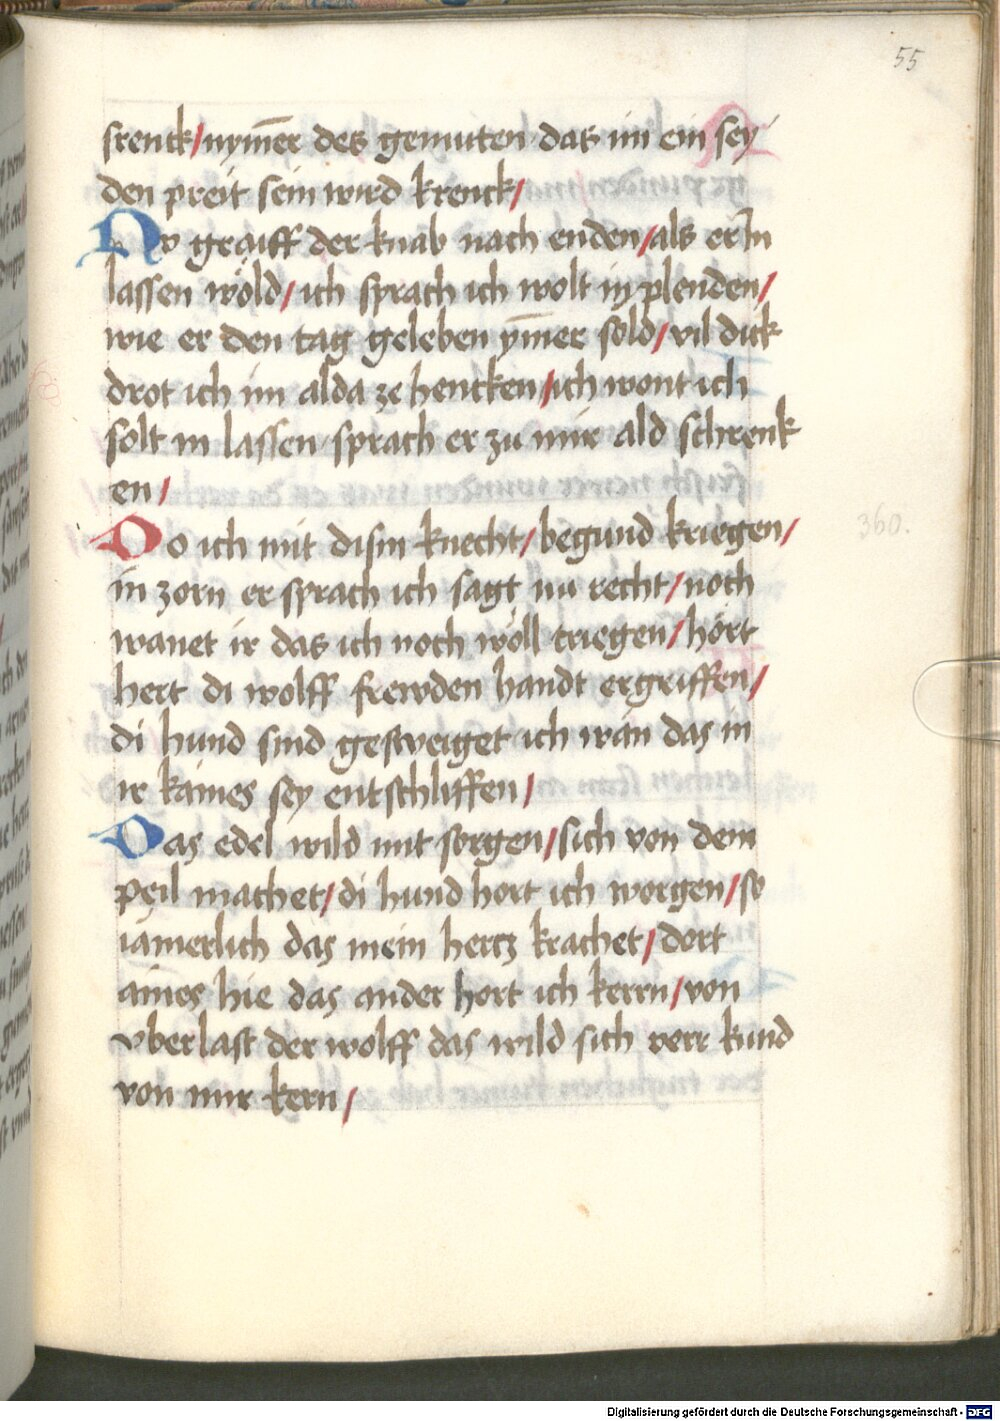 55
srenck/nym̄er des gemuten das im ein sey
den preit sein wird krenck/
Nv graiff der knab nach enden/als er In
lassen wöld/ich sprach ich wolt in plenden/
wie er den tag geleben ym̄er sold/vil dick
drot ich im alda ze hencken/ich wont ich
solt in lassen sprach er zu mir ald schrenk
en/
Do ich mit dism knecht/begund kriegen/
360.
in zorn er sprach ich sagt nu recht/noch
wanet ir das ich noch wöll triegen/hört
hert di wolff frewden handt ergriffen/
di hund sind gesweiget ich wän das in
ir kaines sey entschliffen/
Das edel wild mit sorgen/sich von dem
peil machet/di hund hort ich worgen/so
iämerlich das mein hercz krachet/dort
aines hie das ander hort ich kerrn/von
vberlast der wolff das wild sich verr kund
von mir kern/
Digitalisierung gefördert durch die Deutsche Forschungsgemeinschaft - DFG